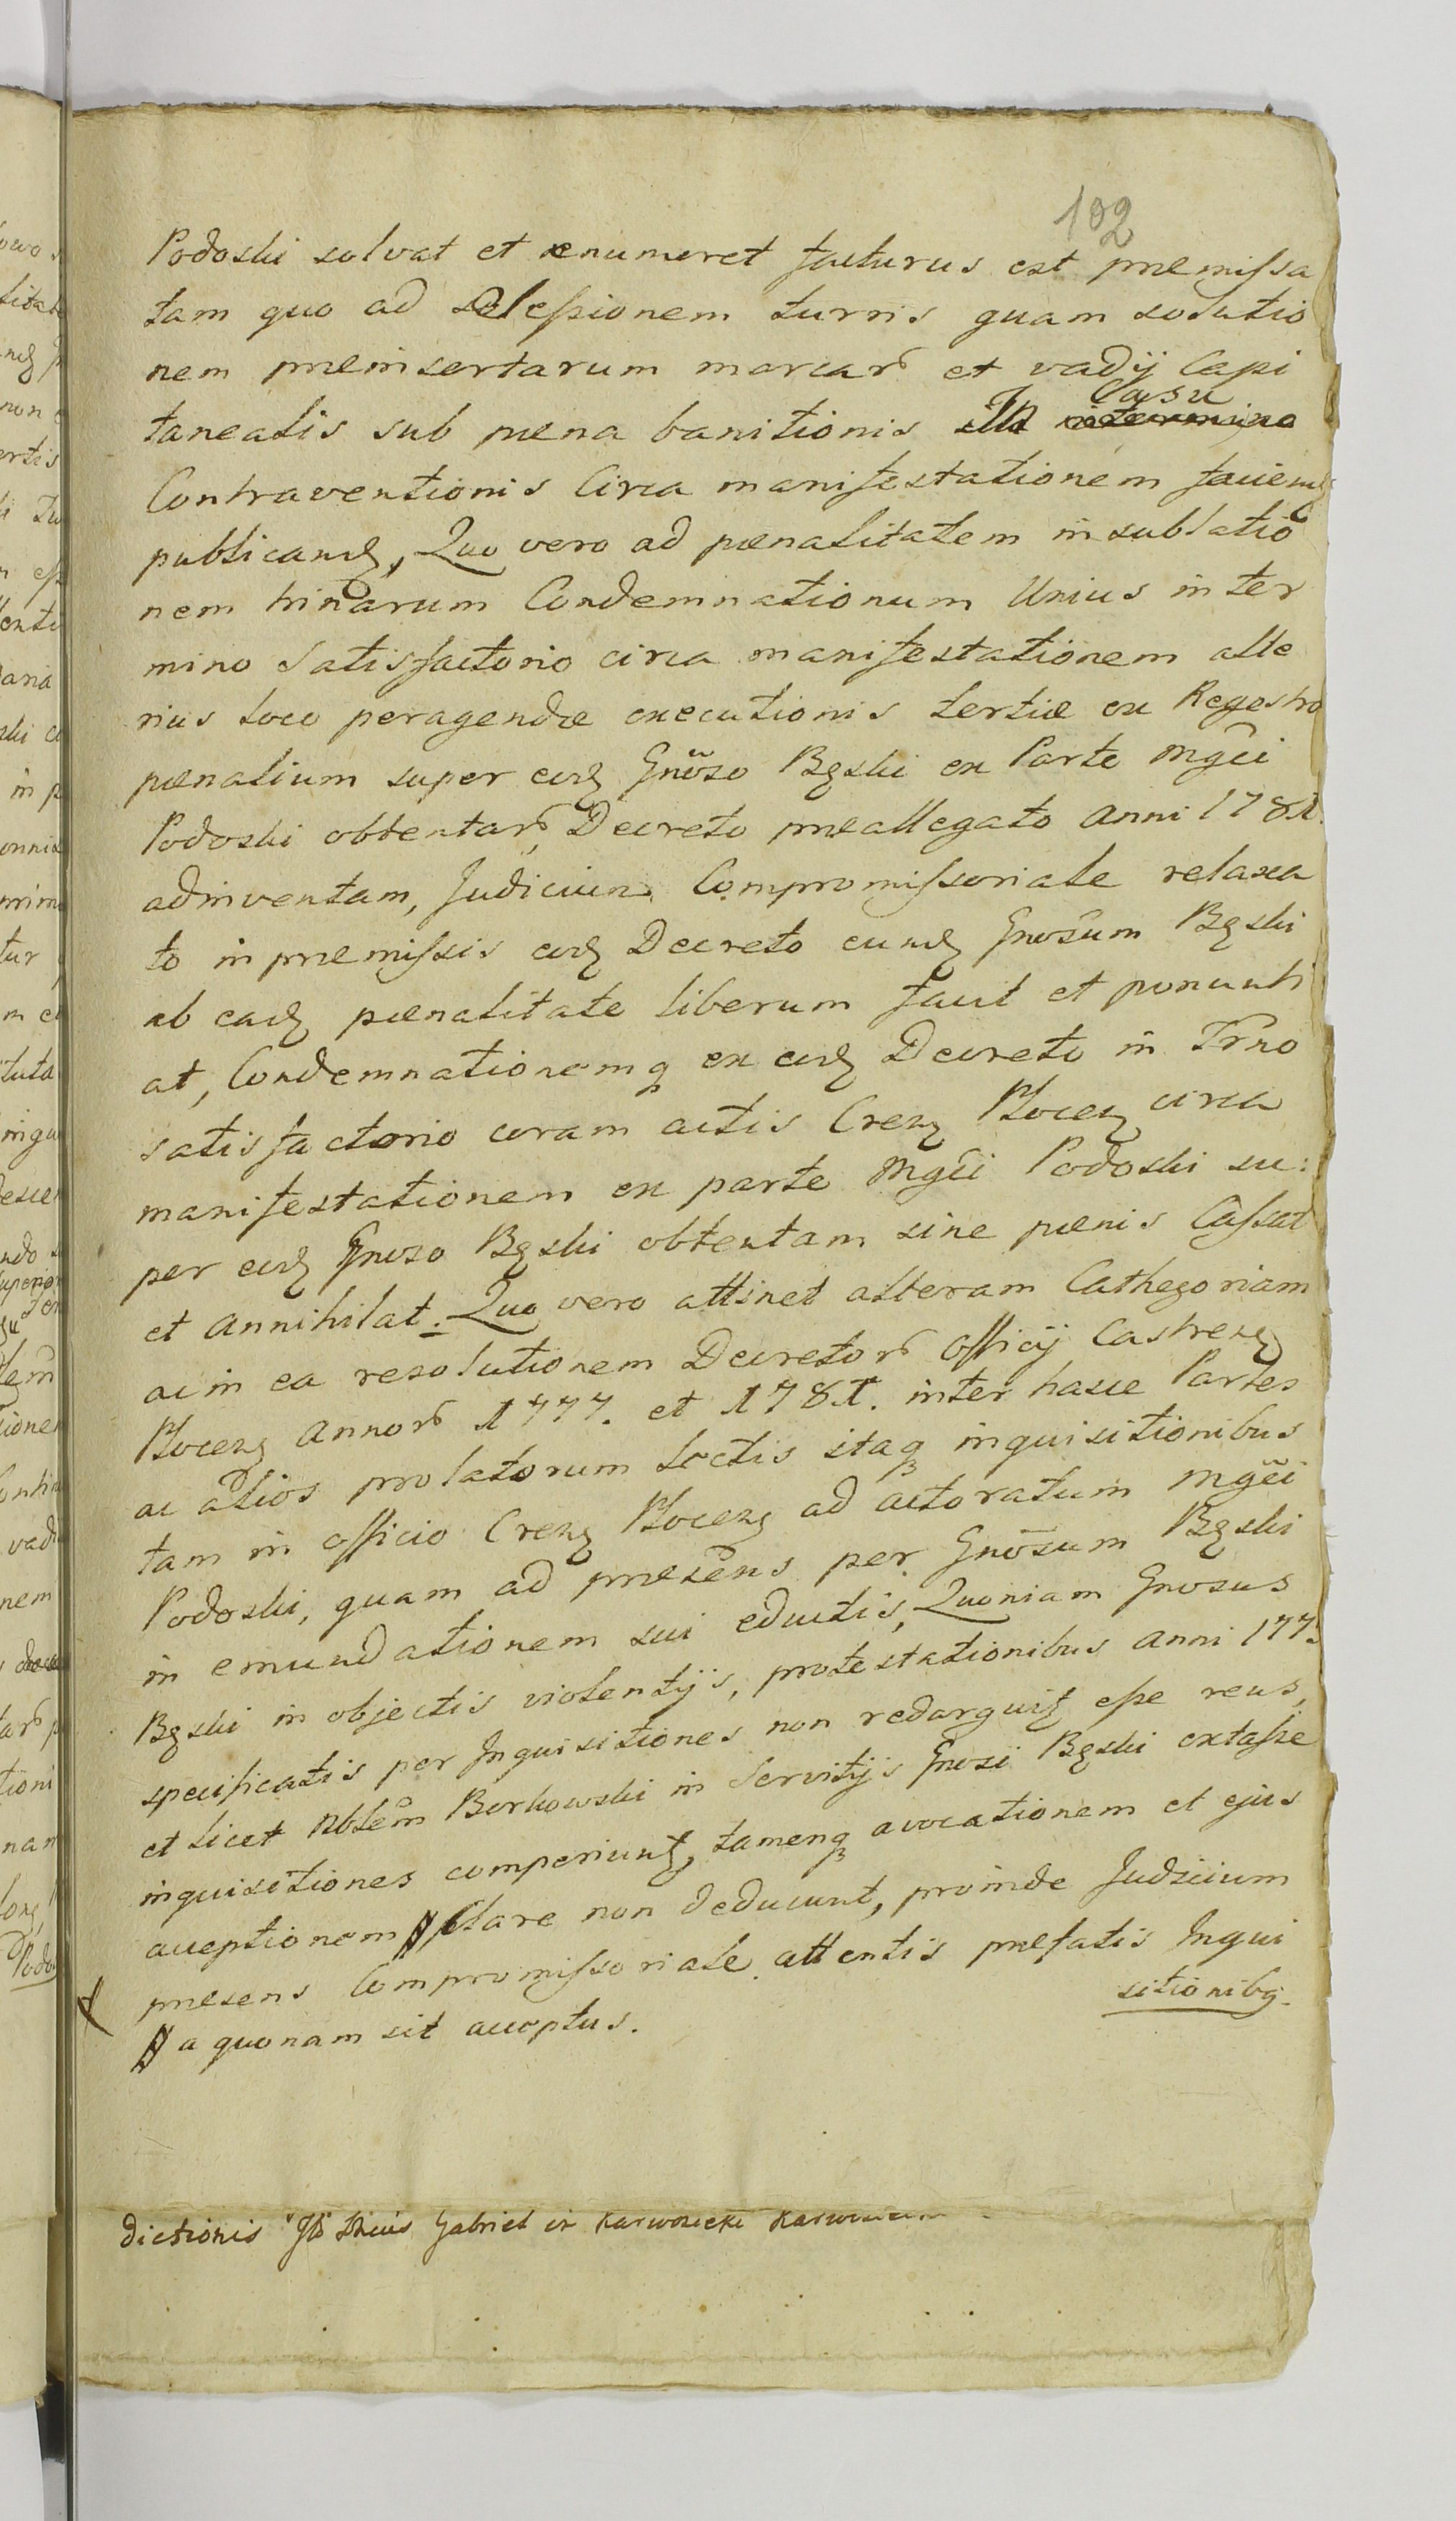 102
Podoski solvat et enumeret facturus est præmissa
tam quo ad sessionem turris quam solutio
nem præinsertarum marcarũ et vadij Capi
tanealis sub pœna banitionis In Casu
Contraventionis Circa manifestationem faciend
publicand, Quo vero ad pœnalitatem in sublatio
nem trinarum Condemnationum Unius in ter
mino Satisfactorio circa manifestationem alte
rius loco peragendæ executionis tertiæ ex Regestro
pœnalium super eod Gnoso Bęski ex Parte Mgci
Podoski obtentarũ, Decreto præallegato Anni 1781.
adinventam, Judicium Compromissoriale relaxa
to in præmissis eod Decreto eund Gnosum Bęski
ab ead pœnalitate liberum facit et pronunti
at, Condemnationemq ex eod Decreto in Trno
satisfactorio coram actis Crenz Plocenz circa
manifestationem ex parte Mgci Podoski su:
per eod Gnoso Bęski obtentam sine pœnis Cassat
et Annihilat. Quo vero attinet alteram Cathegoriam
ac in ea resolutionem Decretorũ Officij Castrenz
Plocenz Annorũ 1777. et 1781. inter hasce Partes
ac alios prolatorum lectis itaq inquisitionibus
tam in Officio Crenz Plocenz ad actoratum Mgci
Podoski, quam ad præsens per Gnosum Bęski
in emundationem sui eductis, Quoniam Gnosus
Bęski in objectis violentijs, protestationibus Anni 177
specificatis per Inquisitiones non redarguit esse reus,
et licet Nblem Borkowski in Servitijs Gnosi Bęski extasse
inquisitiones comperiunt, tamenq avocationem et ejus
acceptionem clare non deducunt, proinde Judicium
præsens Compromissoriale attentis præfatis Inqui
sitionibq.
a quonam sit acceptus.
Dictionis Gabriel in Karwosieki